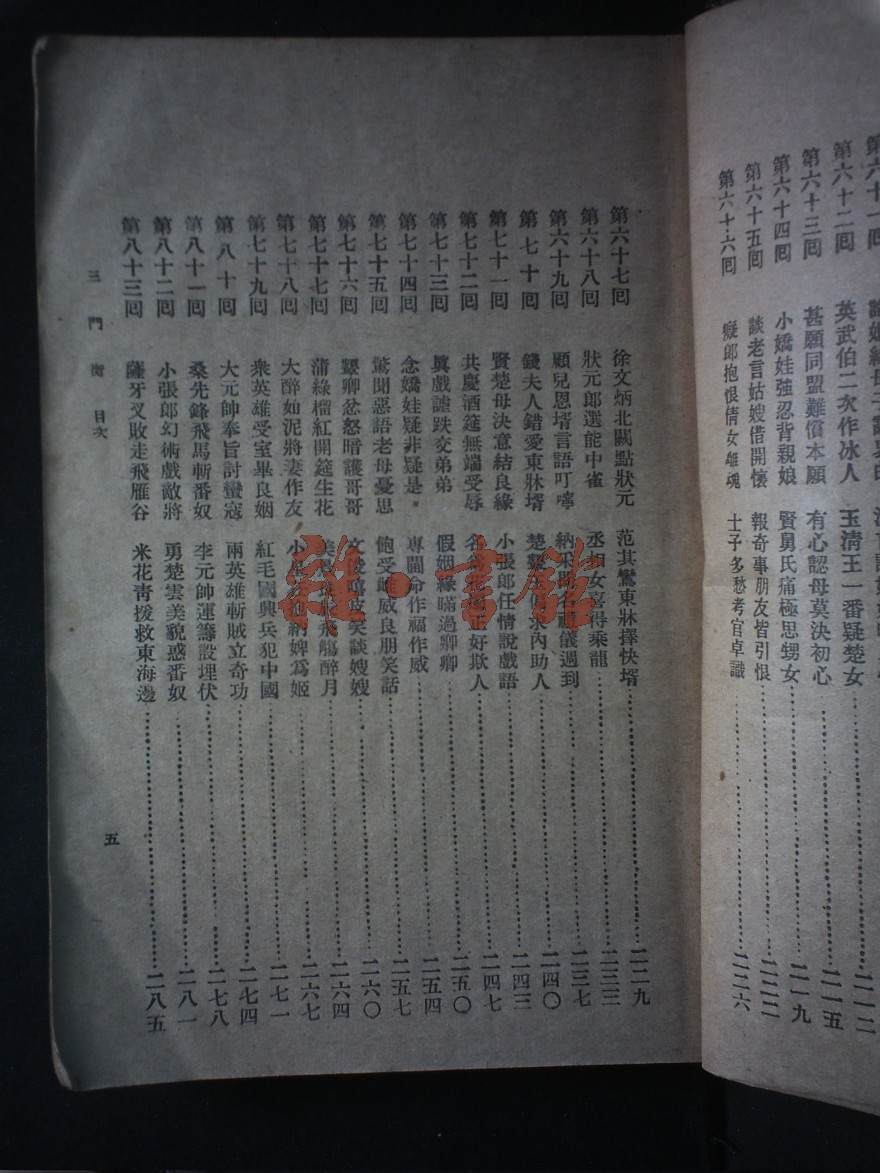 第六十二回 英武伯二次作冰人 玉清王一番疑楚女
第六十三回 甚願同盟難償本願 有心認母莫決初心……二一五
第六十四回 小嬌娃強忍背親娘 賢舅氏痛極思甥女……二一九
第六十五回 談老言姑嫂借開懷 報奇事朋友皆引恨……二二二
第六十六回 癡郎抱恨倩女離魂 士子多愁考官卓識……二二六
第六十七回 徐文炳北闕點狀元 范其鸞東牀擇快壻……二二九
第六十八回 狀元郎選能中雀 丞相女喜得乘龍……二三三
第六十九回 顧兒恩壻言語叮嚀 納采 禮儀週到……二三七
第七十回 錢夫人錯愛東牀壻 楚 求內助人……二四〇
第七十一回 賢楚母決意結良緣 小張郎任情說戲語……二四三
第七十二回 共慶酒筵無端受辱 名 正好欺人……二四七
第七十三回 眞戲謔跌交弟弟 假姻緣瞞過卿卿……二五〇
第七十四回 念嬌娃疑非疑是 專閫命作福作威……二五四
第七十五回 驚聞惡語老母憂思 飽受 威良朋笑話……二五七
第七十六回 顰卿忿怒暗護哥哥 文俊嘻皮笑談嫂嫂……二六〇
第七十七回 蒲綠榴紅開筵生花 美 飛觴醉月……二六四
第七十八回 大醉如泥將妻作友 小星 納婢爲姬……二六七
第七十九回 衆英雄受室畢良姻 紅毛國興兵犯中國……二七一
第八十回 大元帥奉旨討蠻寇 兩英雄斬賊立奇功……二七四
第八十一回 桑先鋒飛馬斬番奴 李元帥運籌設埋伏……二七八
第八十二回 小張郎幻術戲敵將 勇楚雲美貌惑番奴……二八一
第八十三回 薩牙叉敗走飛雁谷 米花青援救東海邊……二八五
三門街 目次
五
雜·書館